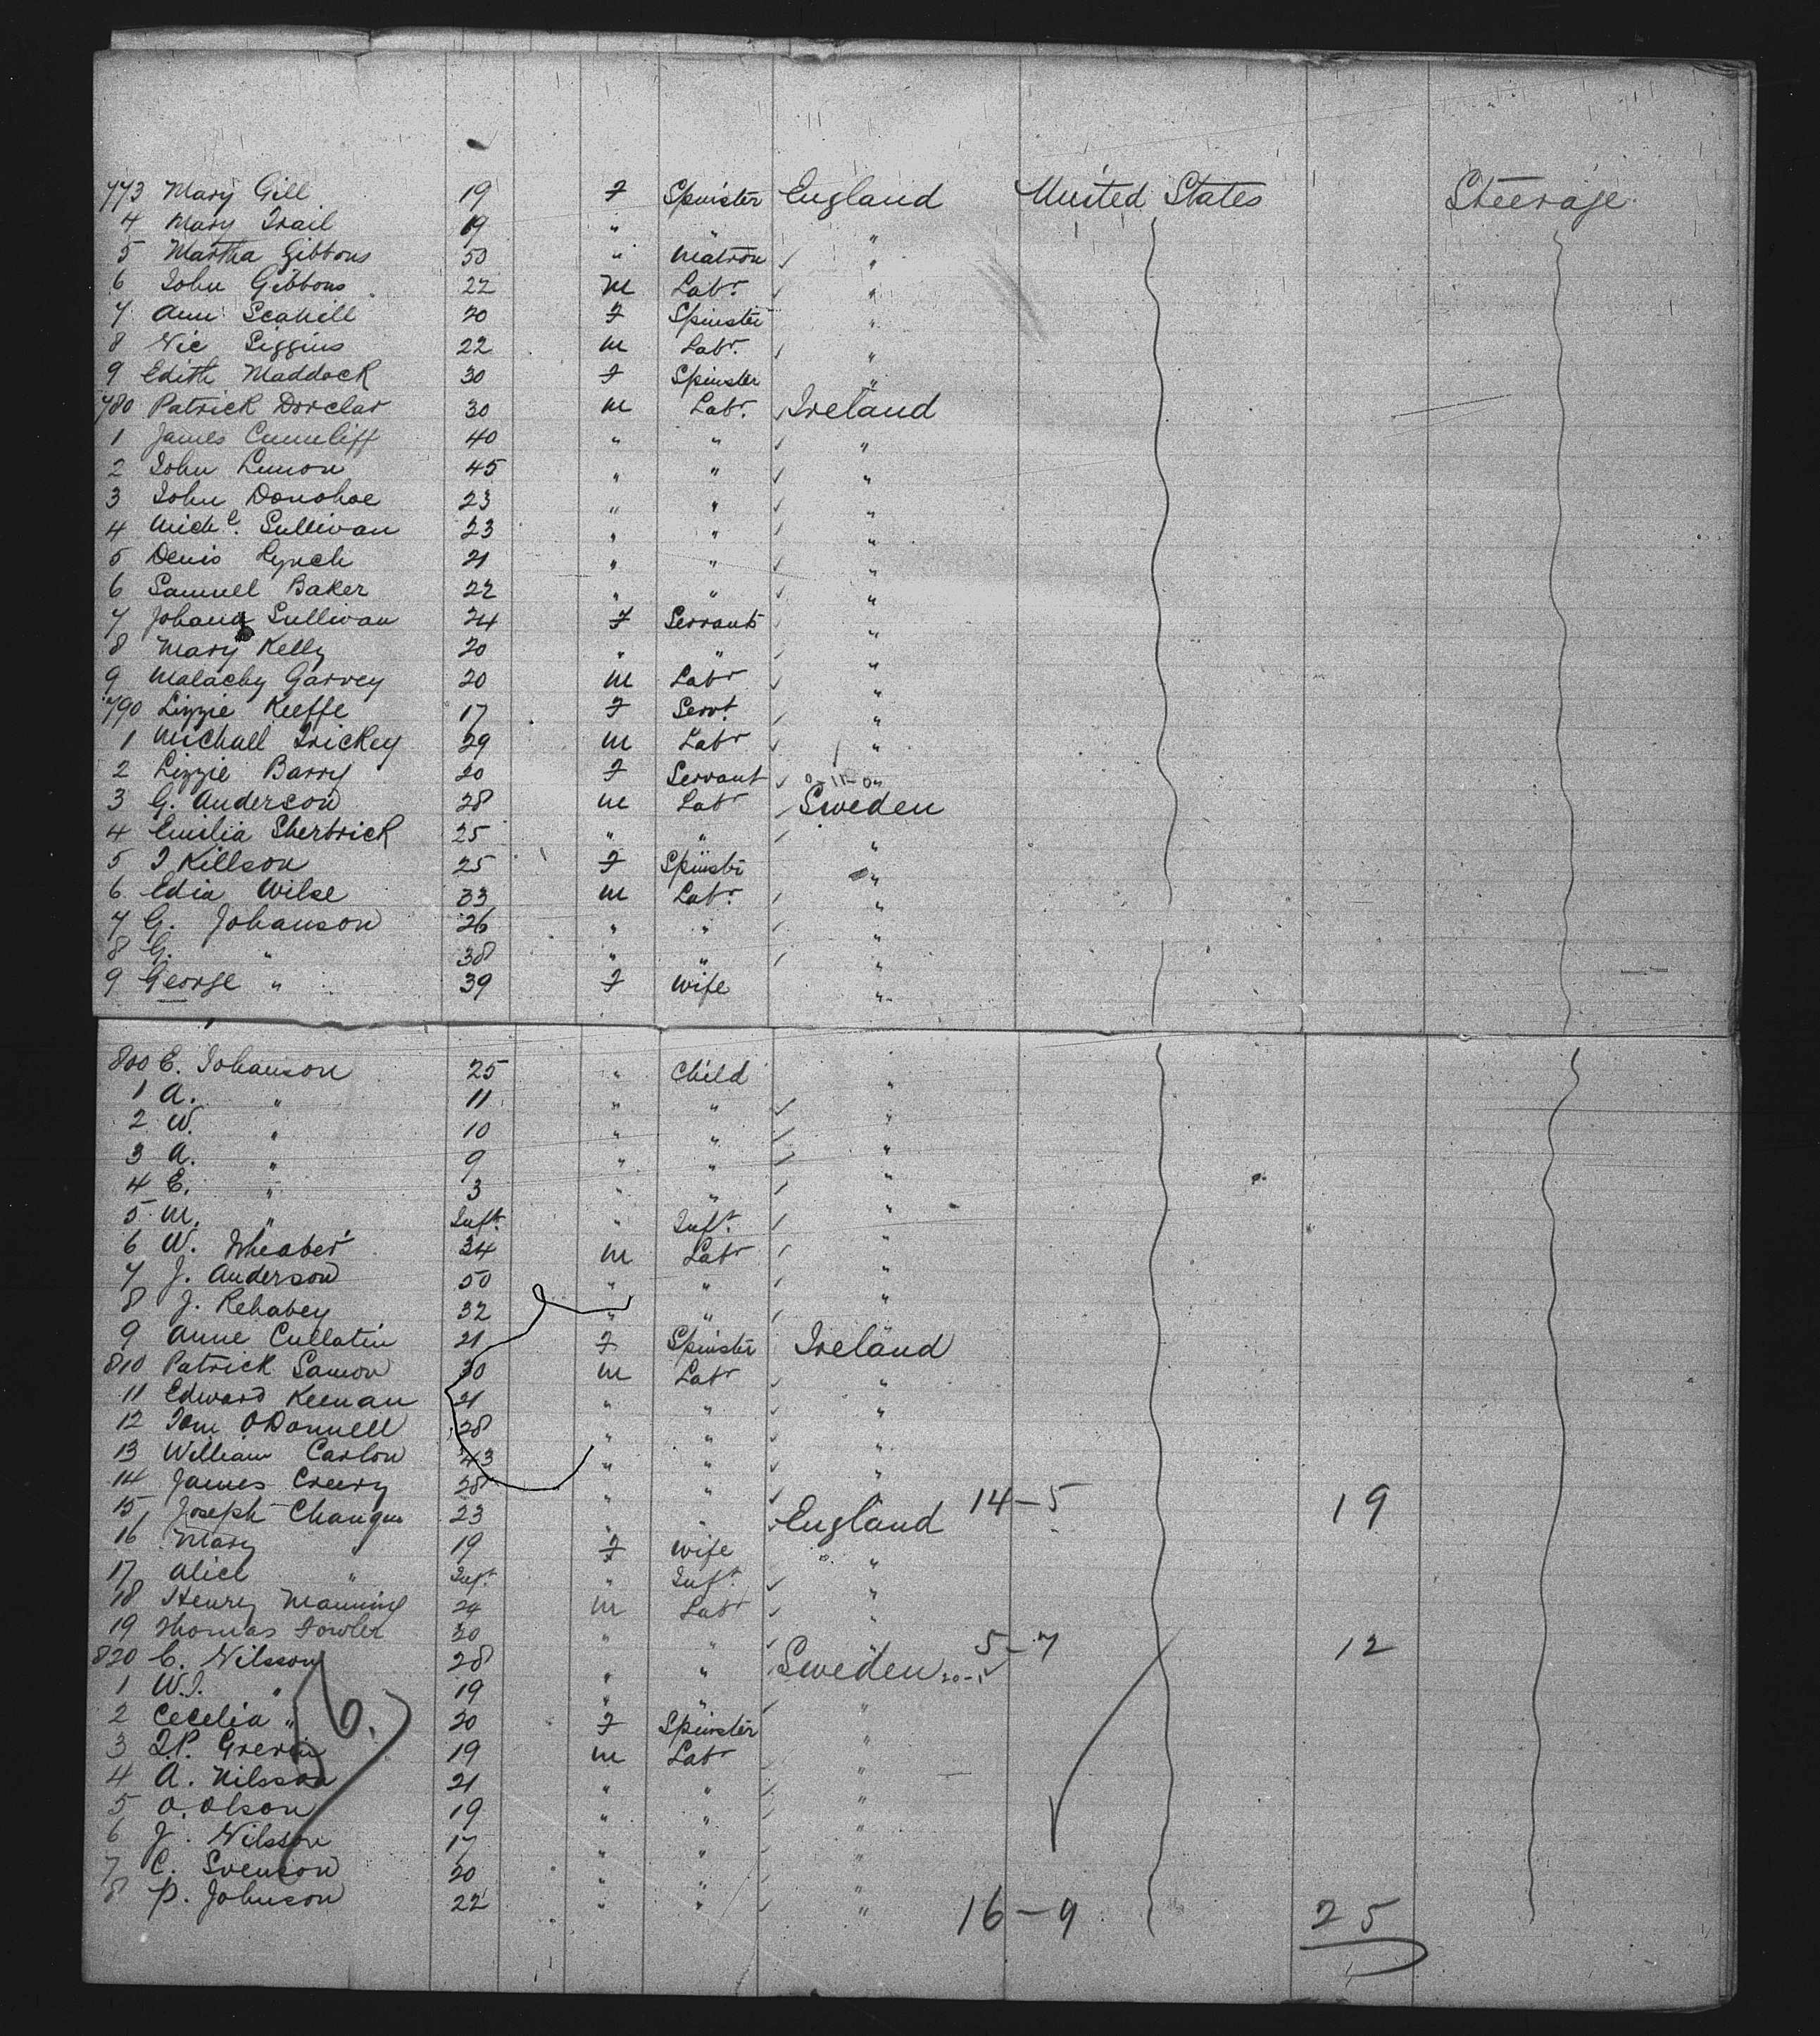 773 Mary Gill 19 F Spinster England United States Steerage
4 Mary Trail 19 " " "
5 Martha Gibbons 50 " Matron "
6 John Gibbons 22 M Labr. "
7 Ann Scahill 20 F Spinster "
8 Nic Siggins 22 M Labr. "
9 Edith Maddock 30 F Spinster "
780 Patrick 30 M Labr. Ireland
1 James Cunnliff 40 " " "
2 John 45 " " "
3 John Donohoe 23 " " "
4 Michl. Sullivan 23 " " "
5 Denis Lynch 21 " " "
6 Samuel Baker 22 " " "
7 Johana Sullivan 24 F Servant "
8 Mary Kelly 20 " " "
9 Malachy Garvey 20 M Labr "
790 Lizzie Keeffe 17 F Servt. "
1 Michall Trickey 29 M Labr "
2 Lizzie Barry 20 F Servant "
3 G. Anderson 28 M Labr Sweden
4 Emilia Sherbrick 25 " " "
5 J Killson 25 F Spinster "
6 Edia Wilse 33 M Labr. "
7 G. Johanson 26 " " "
8 G. " 38 " " "
9 George " 39 F Wife "
800 E. Johanson 25 " Child "
1 A. " 11 " " "
2 W. " 10 " " "
3 A. " 9 " " "
4 E. " 3 " " "
5 M. " Inft. " Inft. "
6 W. 34 M Labr "
7 J. Anderson 50 " " "
8 J. Rehabey 32 " " "
9 Anne Cullatin 21 F Spinster Ireland
810 Patrick Samon 30 M Labr "
11 Edward Keenan 21 " " "
12 Tom O'Donnell 28 " " "
13 William Carlon 43 " " "
14 James Creery 28 " " "
14-5 19
15 Joseph 23 " " England
16 Mary 19 F Wife "
17 Alice " Inft. " Inft. "
18 Henry Manning 24 M Labr "
19 Thomas Fowler 30 " " "
5-7 12
820 C. Nilsson 28 " " Sweden
1 W.J. " 19 " " "
2 Cecelia " 20 F Spinster "
3 19 M Labr "
4 A. Nilsson 21 " " "
5 O. Olson 19 " " "
6 J. Nilsson 17 " " "
7 C. Svenson 20 " " "
8 P. Johnson 22 " " "
16-9 25